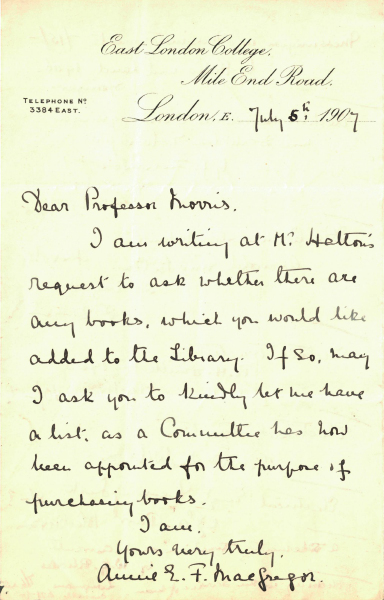 East London College,
Mile End Road.
TELEPHONE Nº
3384 EAST.
London, E. July 5th 1907
Dear Professor Morris.
I am writing at Mr. Hatton's
request to ask whether there are
any books, which you would like
added to the Library. If so, may
I ask you to kindly let me have
a list, as a Committee has now
been appointed for the purpose of
purchasing books.
I am.
Yours very truly.
Annie E. F. MacGregor.